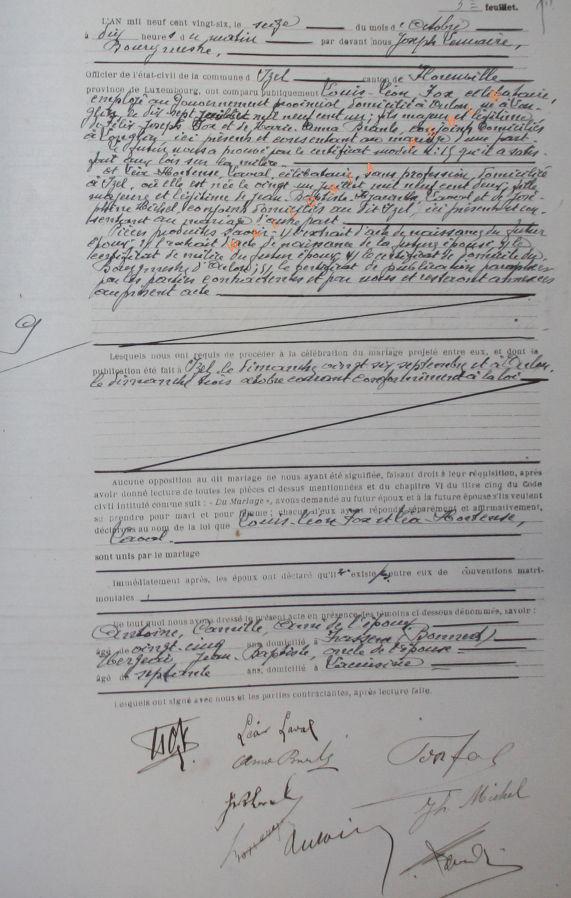 feuillet.
L'AN mil neuf cent vingt-six, le seize du mois d'Octobre
à dix heures du matin par devant nous Joseph
Bourgmestre,
Officier de l'état-civil de la commune d'Izel canton de Florenville
province de Luxembourg, ont comparu publiquement Louis-Léon Fox célibataire,
employé au Gouvernement provincial, domicilié à Arlon, né à
le dix sept mil neuf cent un; fils majeur et légitime
de Félix Joseph Fox et de Marie Anna conjoints domiciliés
à ici présents et consentant au mariage d'une part
Le futur nous a prouvé par le certificat modèle N: 15 qu'il a satis-
fait aux lois sur la milice
et Léa Hortense, Laval, célibataire, sans profession, domiciliée
à Izel, où elle est née le vingt un juillet mil neuf cent deux, fille
majeure et légitime de Jean Baptiste Laval et de José-
phine Michel conjoints domiciliés au dit Izel, ici présents et con-
sentant au mariage d'autre part
Pièces produites savoir: 1) l'extrait d'acte de naissance du futur
époux; 2) l'extrait d'acte de naissance de la future épouse; 3) le
certificat de milice du futur époux; 4) le certificat de domicile du
Bourgmestre d'Arlon; 5) le certificat de publication paraphées
par les parties contractantes et par nous et resteront annexées
au présent acte
9
Lesquels nous ont requis de procéder à la célébration du mariage projeté entre eux, et dont la
publication été fait à Izel, le dimanche vingt six septembre et à Arlon
le dimanche trois octobre courant conformément à la loi
Aucune opposition au dit mariage ne nous ayant été signifiée, faisant droit à leur réquisition, après
avoir donné lecture de toutes les pièces ci-dessus mentionnées et du chapitre VI du titre cinq du Code
civil intitulé comme suit : « Du Mariage », avons demandé au futur époux et à la future épouse s'ils veulent
se prendre pour mari et pour femme ; chacun d'eux ayant répondu séparément et affirmativement,
déclarons au nom de la loi que Louis-Léon Fox et Léa-Hortense,
Laval
sont unis par le mariage
Immédiatement après, les époux ont déclaré qu'il existe entre eux de conventions matri-
moniales
De tout quoi nous avons dressé le présent acte en présence des témoins ci-dessous dénommés, savoir :
Antoine, Camille, ami de l'époux
âgé de vingt-cinq ans, domicilié à
Jean-Baptiste, oncle de l'épouse
âgé de septante ans, domicilié à
Lesquels ont signé avec nous et les parties contractantes, après lecture faite.
Léa Laval
Jh Michel
Antoine